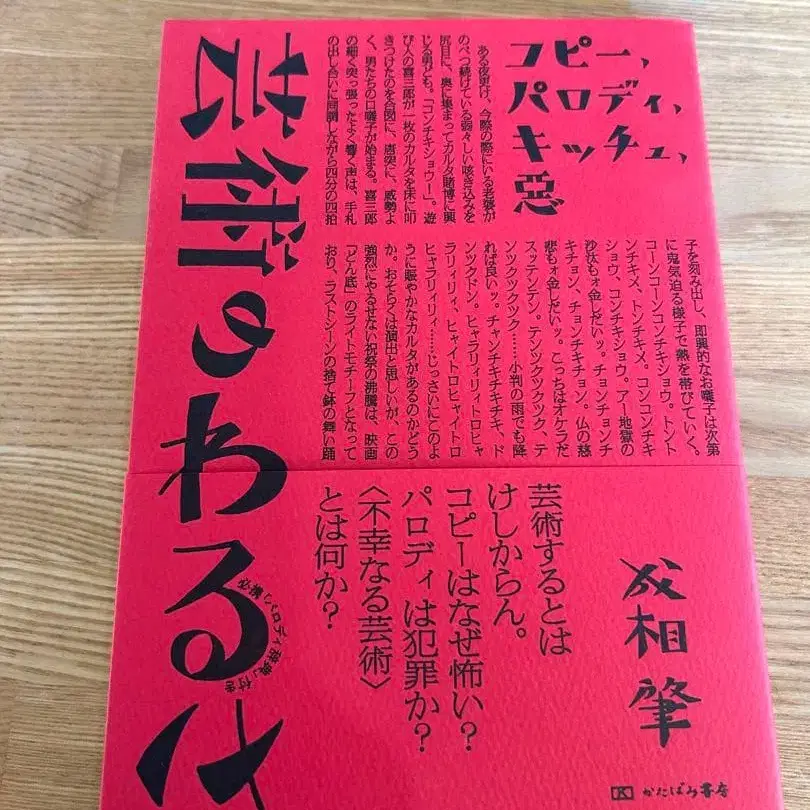 コピー、
パロディ、
キッチュ、
悪
芸術のわるさ
ある夜更け、今際の際にいる老婆が
のべつ続けている弱々しい咳き込みを
尻目に、奥に集まってカルタ賭博に興
じる男ども。「コンチキショウー!」。遊
び人の喜三郎が一枚のカルタを床に叩
きつけたのを合図に、唐突に、威勢よ
く、男たちの口囃子が始まる。喜三郎
の細く突っ張ったよく響く声は、手札
の出し合いに同調しながら四分の四拍
子を刻み出し、即興的なお囃子は次第
に鬼気迫る様子で熱を帯びていく。
コーンコーンコンチキショウ、トント
ンチキメ、トンチキメ。コンコンチキ
ショウ、コンチキショウ。アー地獄の
沙汰もォ金しだいッ。チョンチョンチ
キチョン、チョンチキチョン。仏の慈
悲もォ金しだいッ。こっちはオケラだ
スッテンテン。テンツクツクツク、テ
ンツクツクツク……小判の雨でも降
れば良いッ。チャンチキチキチキ、ド
ンツックドン。ヒャラリィリィトロヒャ
ラリィリィ、ヒャイトロヒャイトロ
ヒャラリィリィ……じっさいにこのよ
うに賑やかなカルタがあるのかどう
か。おそらくは演出と思しいが、この
強烈にやるせない祝祭の沸騰は、映画
「どん底」のライトモチーフとなって
おり、ラストシーンの捨て鉢の舞い踊
芸術するとは
けしからん。
コピーはなぜ怖い?
パロディは犯罪か?
〈不幸なる芸術〉
とは何か?
成相肇
必携「パロディ辞典」付き
かたばみ書房